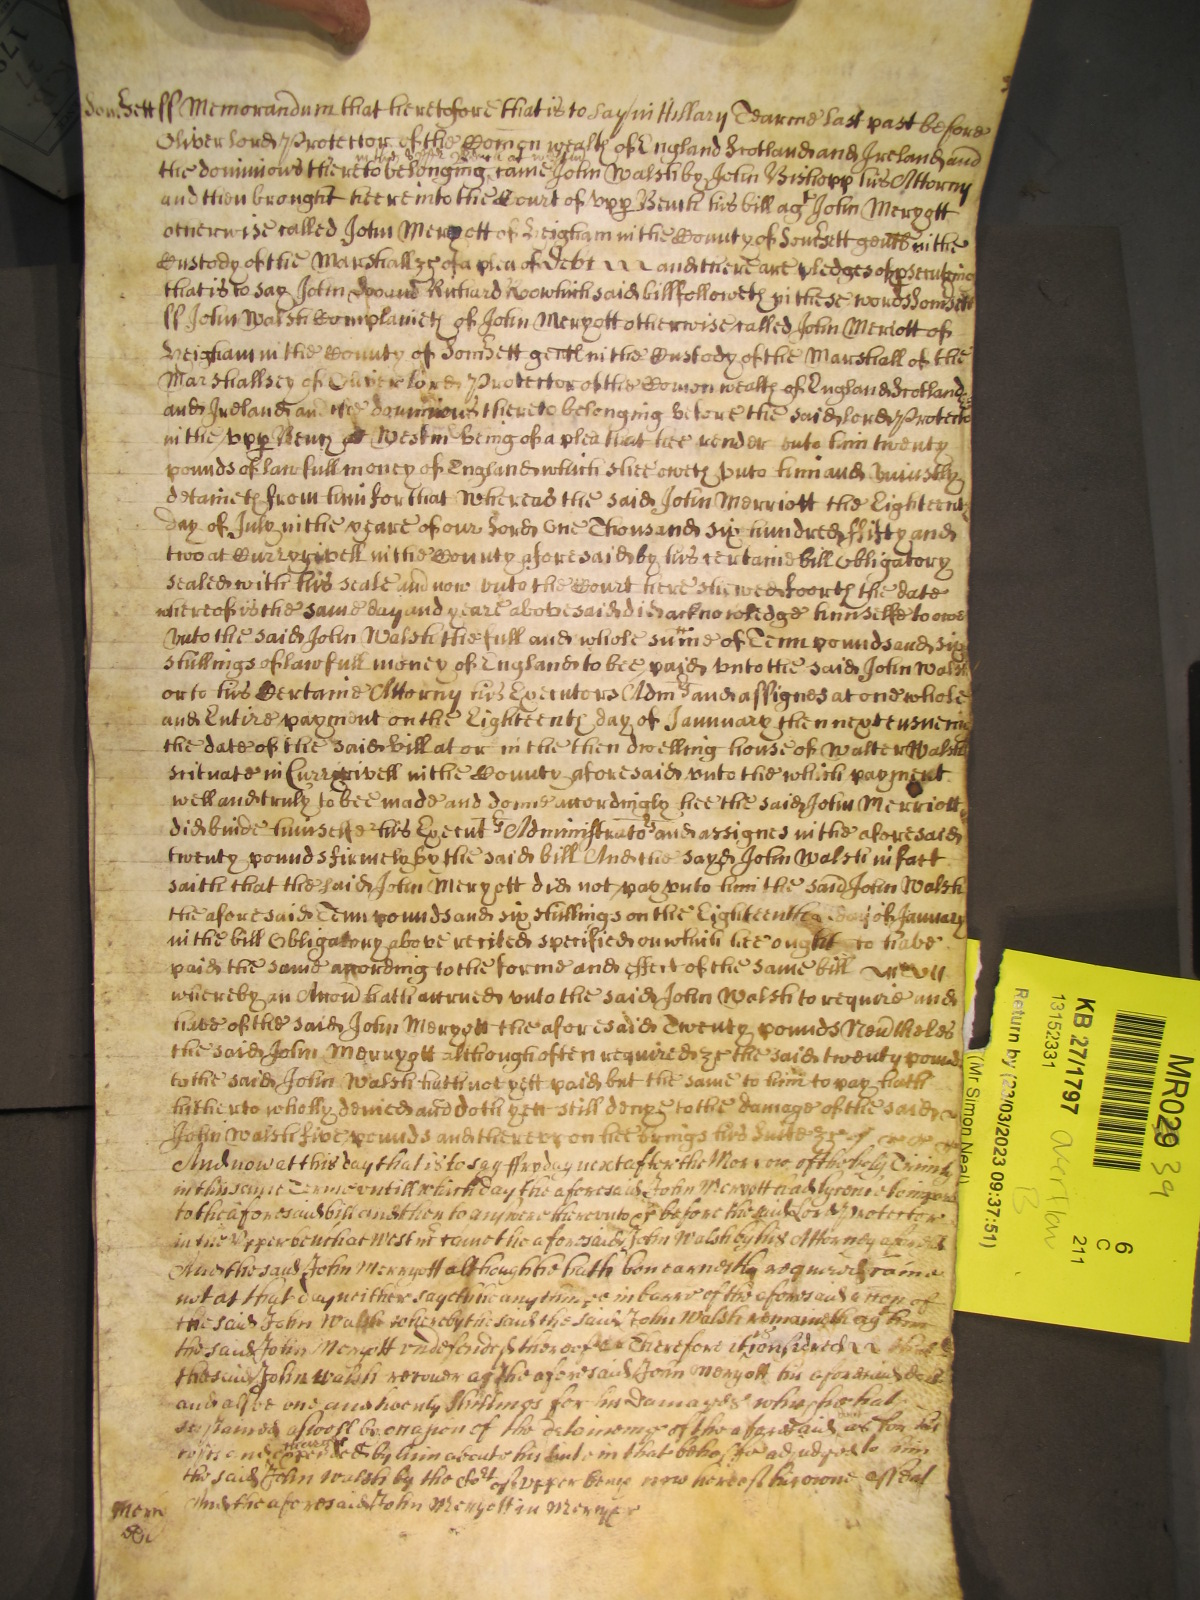 Somsett ss Memorandum that heretofore that is to say in Hillary Tearme last past before
Oliver Lord Protector of the Comon wealth of England Scotland and Ireland and
the dominions thereto belonging came John Walsh by John Bishopp his Attorny
and then brought heere into the Court of upp Bench his bill agt John Meryott
otherwise called John Meryott of Leigham in the County of Somsett gentl in the
Custody of the Marshall &c of a plea of Debt and there are pledges of psecuting
that is to say John Doo and Richard Roo which said bill followeth in these words Somsett
ss John Walsh Complaineth of John Meryott otherwise called John Meriott of
Leigham in the County of Somsett gentl in the Custody of the Marshall of the
Marshallsey of Oliver Lord Protector of the Comon wealth of England Scotland
and Ireland and the dominions thereto belonging before the said Lord Protector
in the upp Bench at Westm being of a plea that hee render unto him twenty
pounds of lawfull money of England which hee oweth unto him and uniustly
detaineth from him for that Whereas the said John Merriott the Eighteenth
day of July in the yeare of our Lord One Thousand six hundred fifty and
two at Curryrivell in the County aforesaid by his certaine bill Obligatory
sealed with his seale and now unto the Court here shewed foorth the date
whereof is the same day and yeare abovesaid did acknowledge himselfe to owe
unto the said John Walsh the full and whole sume of Tenn pounds and six
shillings of lawfull money of England to bee paid unto the said John Walsh
or to his Certaine Attorny his Executors Admrs and assignes at one whole
and Entire payment on the Eighteenth day of Jannuary then next ensueing
the date of the said bill at or in the then dwelling house of Walter Walsh
scituate in Curryrivell in the County aforesaid unto the which payment
well and truly to bee made and donne accordingly hee the said John Merriott
did binde himselfe his Executrs Administratrs and assignes in the aforesaid
twenty pounds firmely by the said bill And the sayd John Walsh in fact
saith that the said John Meryott did not pay unto him the said John Walsh
the aforesaid Tenn pounds and six shillings on the Eighteenth day of January
in the bill Obligatory above recited specified on which hee ought to have
paid the same according to the forme and effect of the same bill
whereby an Accon hath accrued unto the said John Walsh to require and
have of the said John Meryott the aforesaid Twenty pounds Nevtheles
the said John Merryott although often required &c the said twenty pounds
to the said John Walsh hath not yett paid but the same to him to pay hath
hitherto wholly denied and doth yett still denye to the damage of the said
John Walsh five pounds and thereupon hee brings his suite &c
And now at this day that is to say ffryday next after the Morrow of the holy Trinity
in this same Terme untill which day the aforesaid John Meryott had lycence to imparle
to the aforesaid bill and then to answere thereunto &c before the said Lord Protector
in the Upper bench at Westmr came the aforesaid John Walsh by his Attorney aforesaid
And the said John Merryott although he hath bene earnestly required came
not at that day neither sayth he any thinge in barre of the aforesaid accon of
the said John Walsh whereby the said the said John Walsh remaineth agt him
the said John Meryott undefended thereof &c Therefore it is considered that
the said John Walsh recover agt the aforesaid John Meryott his aforesaid debt
and alsoe one and twenty shillings for his Damages which he hath
sustained aswell by occasion of the deteineinge of the aforesaid debt as for his
costs and charges expended by him about his suite in that behalfe adjudged to him
the said John Walsh by the Cort of upper bench now here of his owne assent
And the aforesaid John Meryott in Mercye &c
Mercy
MR029 39
KB 271/1797
13152331
Return by (23/03/2023 09:37:51)
(Mr Simon Neal)
6
C
211